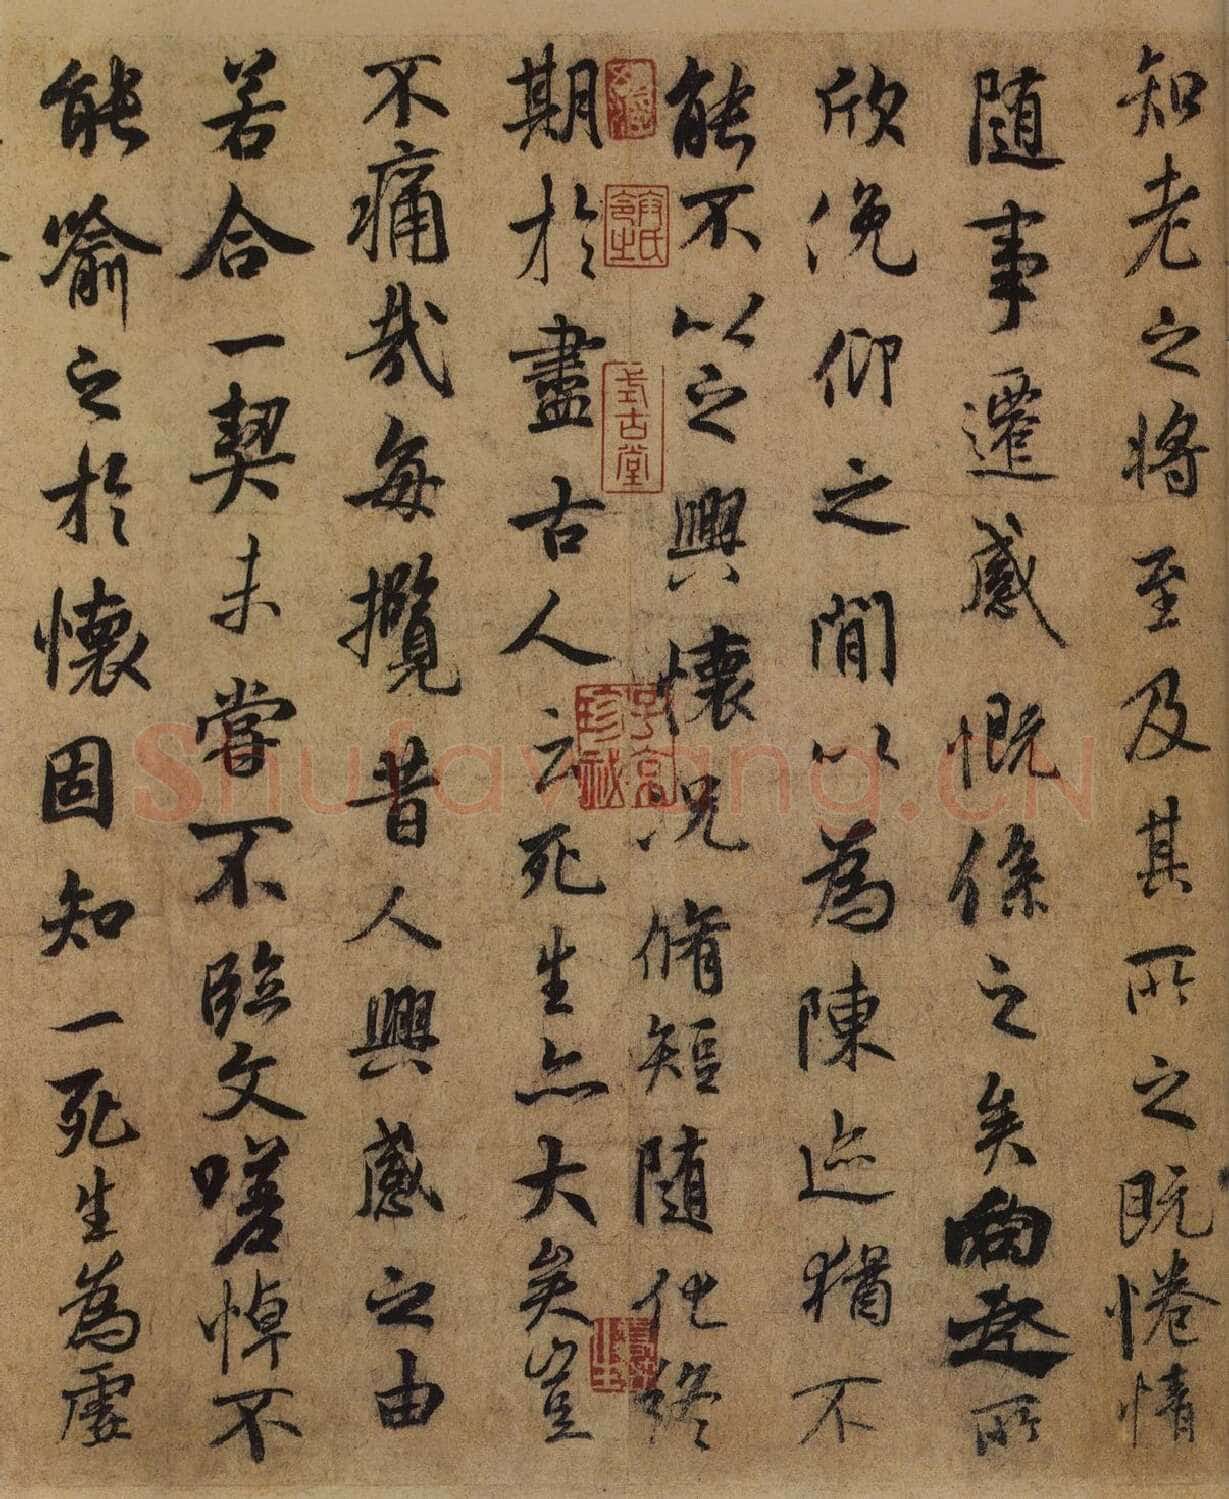 知老之將至及其所之既惓情
隨事遷感慨係之矣向之所
欣俛仰之閒以為陳迹猶不
能不以之興懷況脩短隨化終
期於盡古人云死生亦大矣豈
不痛哉每攬昔人興感之由
若合一契未嘗不臨文嗟悼不
能喻之於懷固知一死生為虛
式古堂
Shufawang.CN